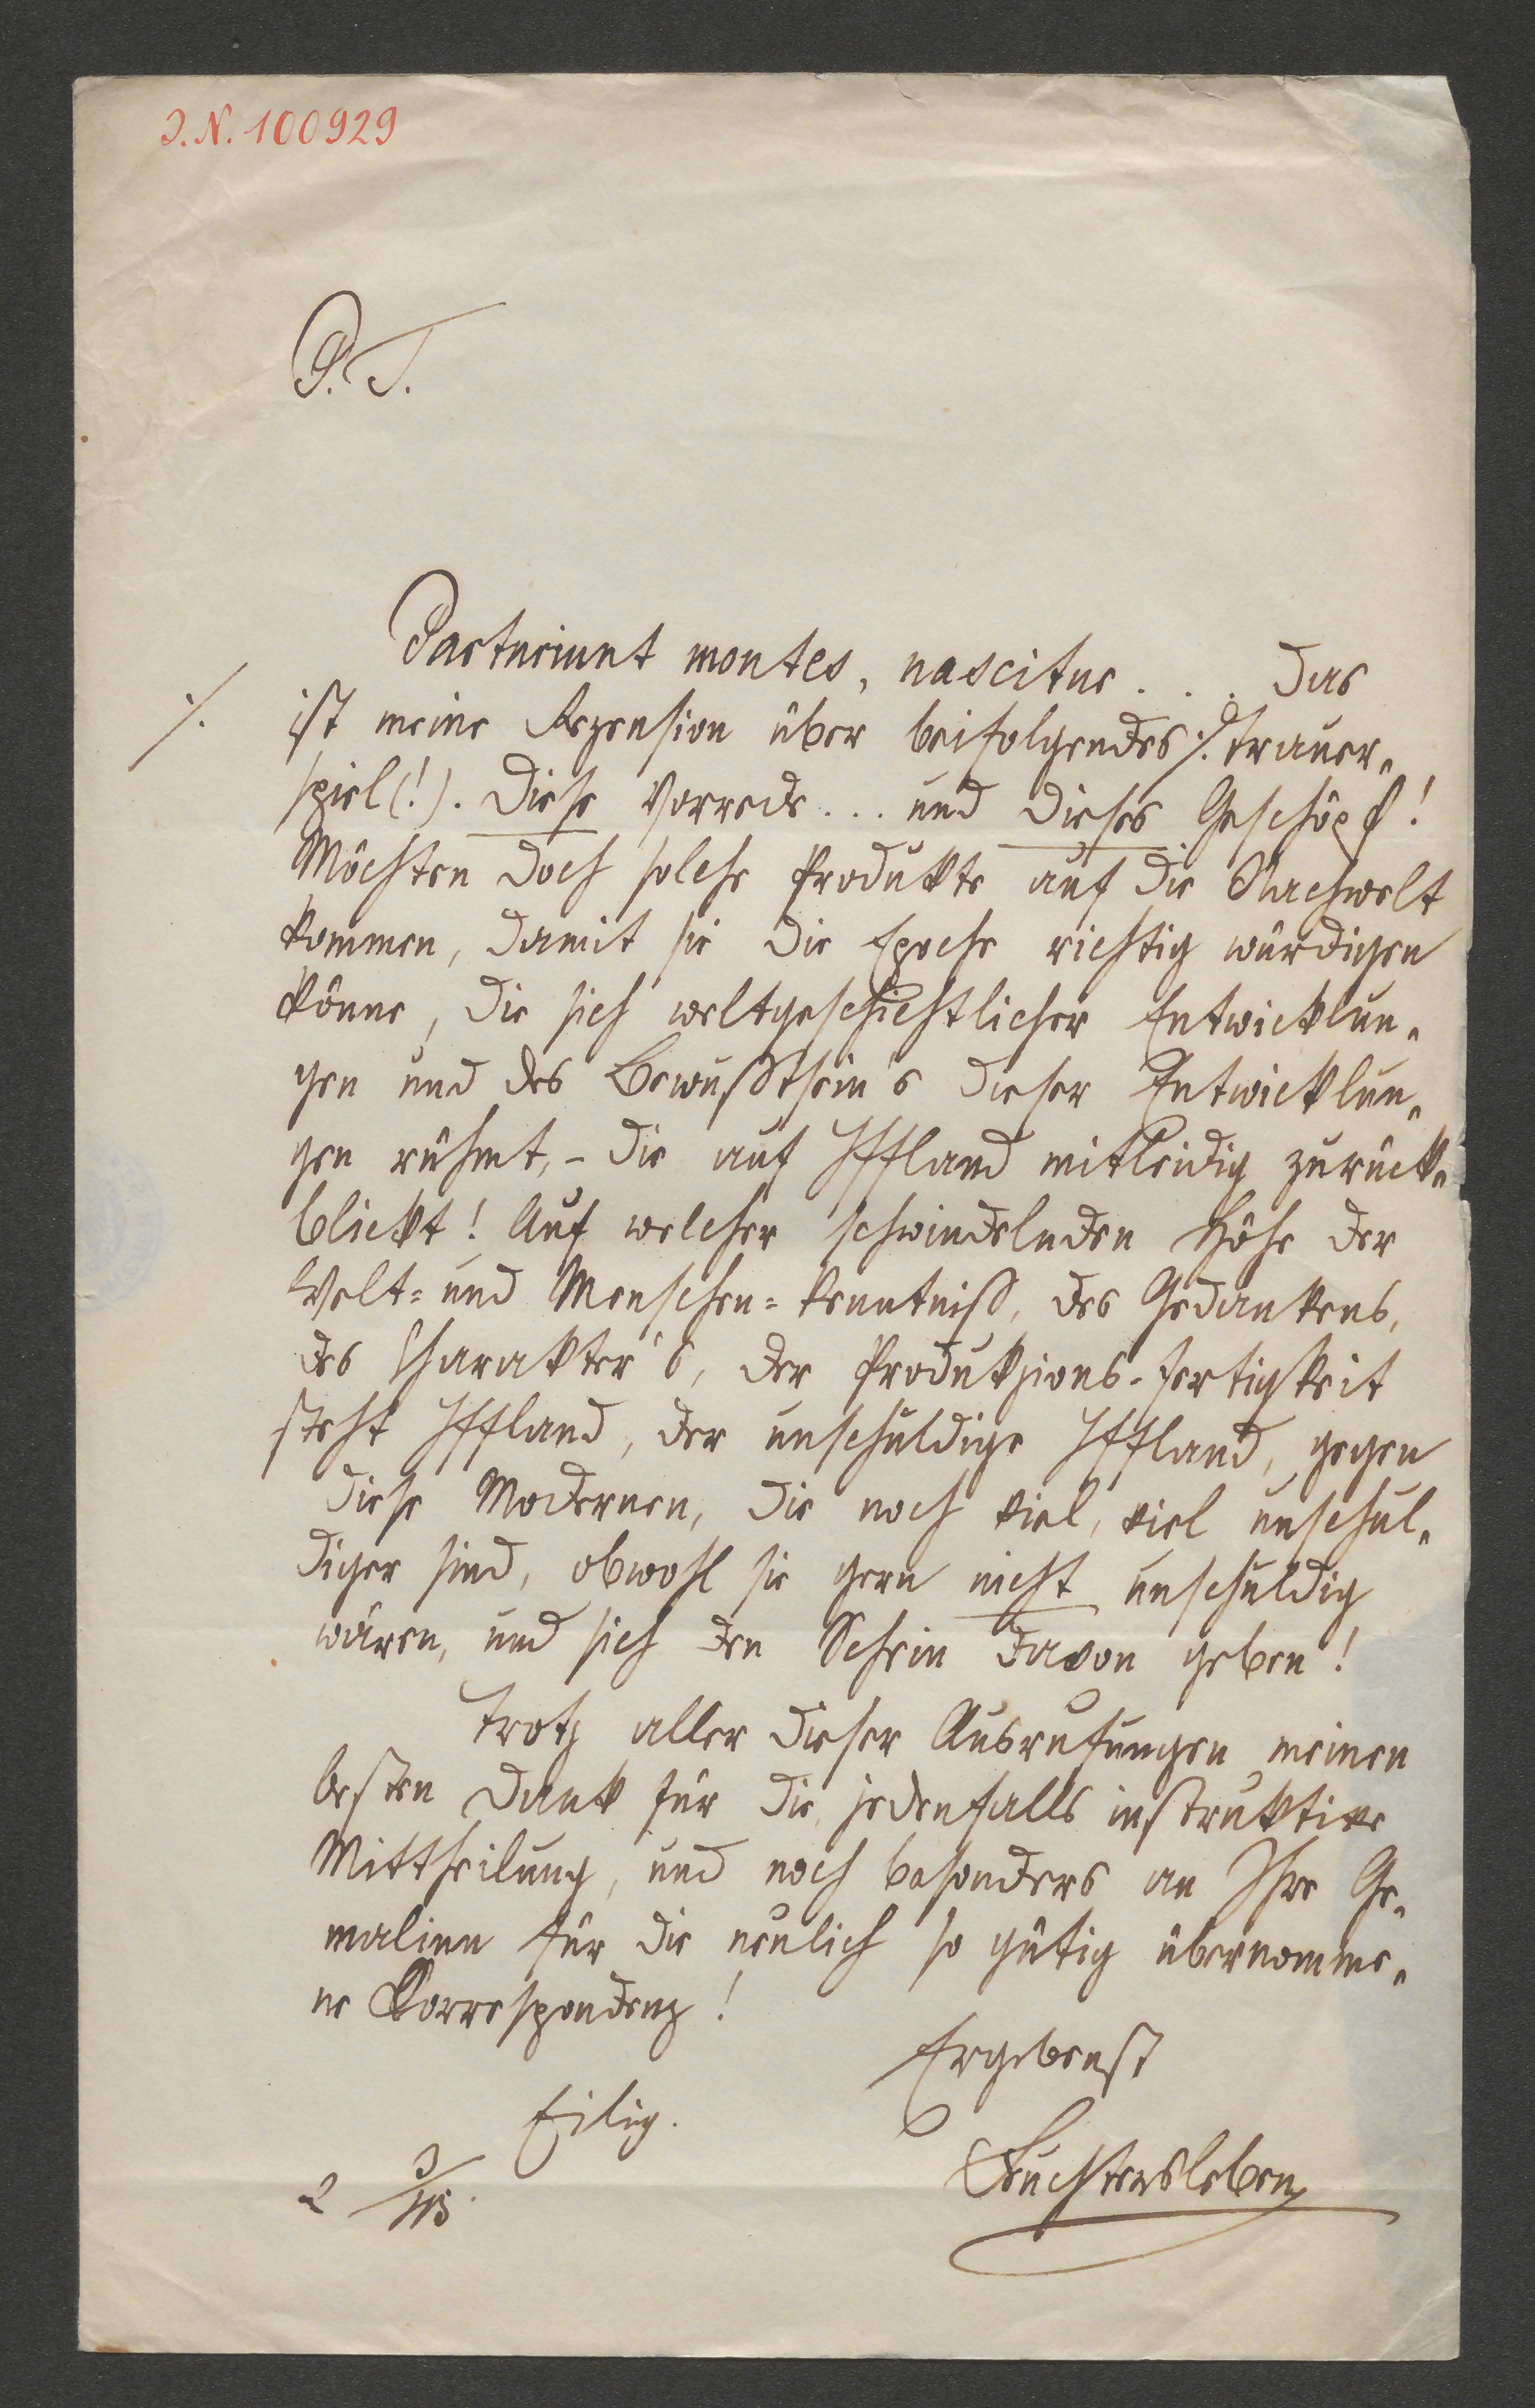 I.N. 100929
P. T.
Parturiunt montes, nascitur . . . Das
./. ist meine Rezension über beifolgendes ./. Trauer-
spiel (!). Diese Vorrede . . . und dieses Geschöpf!
Möchten doch solche Produkte auf die Nachwelt
kommen, damit sie die Epoche richtig würdigen
könne, die sich weltgeschichtlicher Entwicklun-
gen und des Bewußtsein's dieser Entwicklun-
gen rühmt, – die auf Iffland mitleidig zurück-
blickt! Auf welcher schwindelnden Höhe der
Welt- und Menschen-kenntniß, des Gedankens,
des Charakter's, der Produkzions-fertigkeit
steht Iffland, der unschuldige Iffland, gegen
diese Modernen, die noch viel, viel unschul-
diger sind, obwohl sie gern nicht unschuldig
wären, und sich den Schein davon geben!
Trotz aller dieser Ausrufungen meinen
besten Dank für die jedenfalls instruktive
Mittheilung, und noch besonders an Ihre Ge-
malinn für die neulich so gütig übernomme-
ne Korrespondenz!
Ergebenst
Eilig.
Feuchtersleben
2 3/